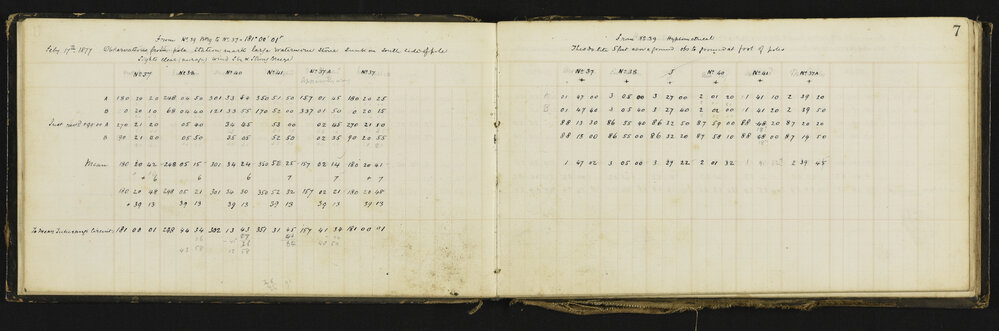 7
From No. 39 Brg to No. 37 - 181° 00' 01"
Feby. 17th 1877 Observations from pole Station mark large Waterworn Stone Sunk on South side of pole
Lights clear (average) Wind S by W Strong Breeze
No 37 No 38 No 40 No 41 No 37A No 37
A 180 20 20 248 04 50 301 33 64 350 51 50 157 01 45 180 20 25
B 0 20 10 68 04 40 121 33 55 170 52 00 337 01 50 0 20 25
270 21 20 05 40 34 45 53 00 02 45 270 21 50
B 90 21 00 05 50 35 05 52 50 02 35 90 20 55
Mean 180 20 42 248 05 15 301 34 24 350 52 25 157 02 14 180 20 41
+ 6 6 6 7 7 + 7
180 20 48 248 05 21 301 34 30 350 52 32 157 02 21 180 20 48
+ 39 13 39 13 39 13 39 13 39 13 39 13
181 00 01 248 44 34 302 13 43 351 31 45 157 41 34 181 00 01
From No. 39 Hypsometrical
Theodolite 5 feet above ground obs to ground at foot of poles
No 37 No 38 J No 40 No 41 No 37A
+ + + + +
A 01 47 00 3 05 00 3 27 00 2 01 20 1 41 10 2 39 30
B 01 47 40 3 05 40 3 27 40 2 02 00 1 41 20 2 39 50
88 13 30 86 55 40 86 32 50 87 59 00 88 48 20 87 20 20
88 13 00 86 55 00 86 32 20 87 58 10 88 48 00 87 19 50
1 47 02 3 05 00 3 27 22 2 01 32 2 39 45